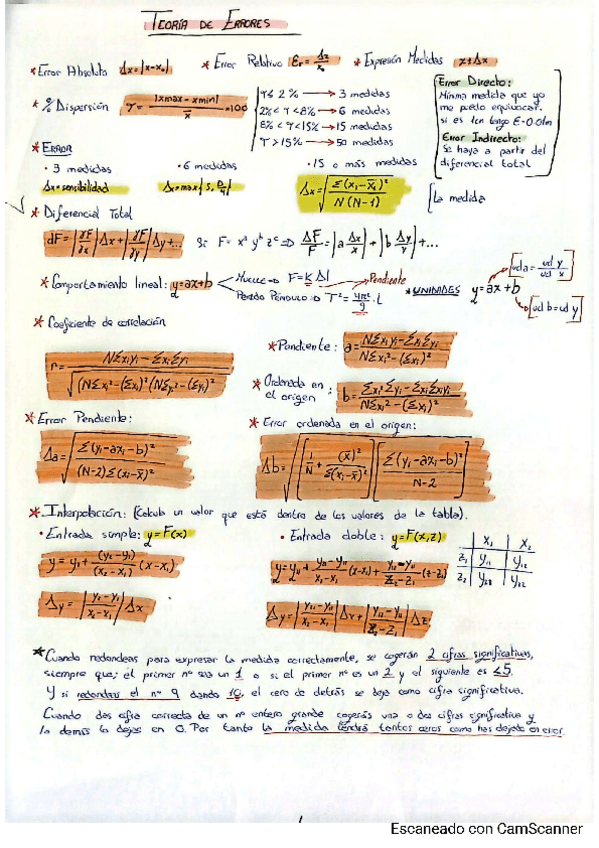 TEORÍA DE ERRORES
* Error Absoluto Δx=|x-x₀| * Error Relativo Er = Δx/x₀ * Expresión Medidas x±Δx
* % Dispersión T = |xmax - xmin|/x̄ ·100
T≤2% → 3 medidas
2%<T<8% → 6 medidas
8%<T<15% → 15 medidas
T>15% → 50 medidas
Error Directo:
Mínima medida que yo
me puedo equivocar.
si es 1cm tengo E=0.01m
Error Indirecto:
Se haya a partir del
diferencial total
* ERROR
· 3 medidas · 6 medidas · 15 o más medidas
Δx=sensibilidad Δx=max{S, D/4} Δx=√(Σ(xi-x̄)²/N(N-1)) [La medida
* Diferencial Total
dF=|γF/γx|Δx+|γF/γy|Δy+... Si F= xª yᵇ zᶜ => ΔF/F = |a Δx/x| + |b Δy/y| +...
* Comportamiento lineal: y=ax+b
Muelle => F=k·Δl → Pendiente
Periodo Péndulo => T²=4π²/g · L
* UNIDADES y=ax+b
[ud a = ud y/ud x]
[ud b=ud y]
* Coeficiente de correlación
r = (NΣxiyi - ΣxiΣyi)/√((NΣxi²-(Σxi)²)(NΣyi²-(Σyi)²))
* Pendiente: a = (NΣxiyi - ΣxiΣyi)/(NΣxi²-(Σxi)²)
* Ordenada en
el origen: b = (Σxi²Σyi - ΣxiΣxiyi)/(NΣxi²-(Σxi)²)
* Error Pendiente: * Error ordenada en el origen:
Δa=√(Σ(yi-axi-b)²/((N-2)Σ(xi-x̄)²)) Δb=√([1/N + (x̄)²/Σ(xi-x̄)²][Σ(yi-axi-b)²/(N-2)])
* Interpolación: (Calcula un valor que está dentro de los valores de la tabla).
· Entrada simple: y=F(x) · Entrada doble: y=F(x,z)
y = y₁+(y₂-y₁)/(x₂-x₁)(x-x₁) y=y₁₁+(y₂₁-y₁₁)/(x₂-x₁)(x-x₁)+(y₁₂-y₁₁)/(z₂-z₁)(z-z₁)
Δy=|(y₂-y₁)/(x₂-x₁)|Δx Δy=|(y₂₁-y₁₁)/(x₂-x₁)|Δx+|(y₁₂-y₁₁)/(z₂-z₁)|Δz
x₁ x₂
z₁ y₁₁ y₁₂
z₂
* Cuando redondeas para expresar la medida correctamente, se cogerán 2 cifras significativas,
siempre que; el primer nº sea un 1 o si el primer nº es un 2 y el siguiente es ≤5.
Y si redondeas el nº 9 dando 10, el cero de detrás se deja como cifra significativa.
Cuando des cifra correcta de un nº entero grande cogerás una o dos cifras significativas y
lo demás lo dejas en 0. Por tanto la medida tendrá tantos ceros como has dejado en error
Escaneado con CamScanner